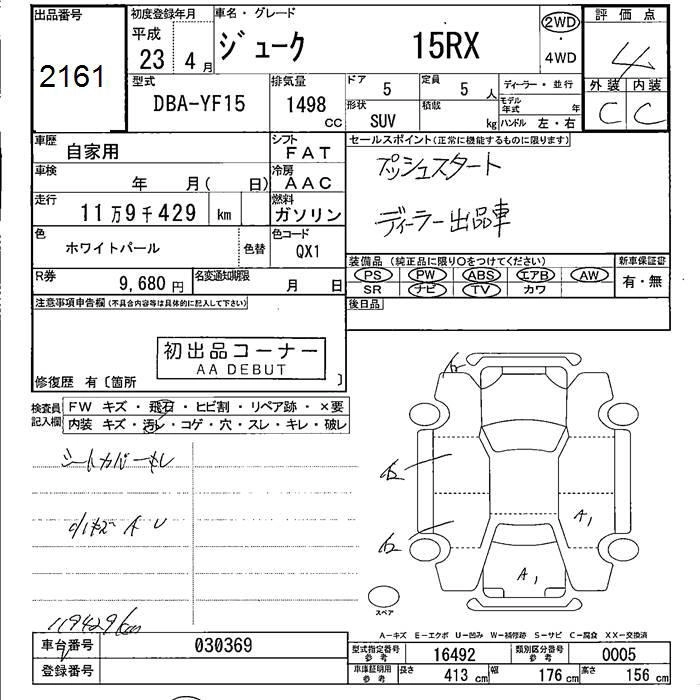 出品番号
2161
初度登録年月
平成
23 4月
車名・グレード
ジューク 15RX
2WD
4WD
評価点
4
外装 内装
C C
型式
DBA-YF15
排気量
1498
CC
ドア
5
定員
5 人
形状
SUV
積載
kg
ディーラー・並行
モデル年式 年
ハンドル 左・右
車歴
自家用
シフト
FAT
車検
年 月( 日)
冷房
AAC
走行
11万9千429 km
燃料
ガソリン
色
ホワイトパール
色替
色コード
QX1
R券
9,680円
名変通知期限
月 日
セールスポイント(正常に機能するものに限ります)
プッシュスタート
ディーラー出品車
装備品(純正品に限り○をつけてください)
PS PW ABS エアB AW
SR ナビ TV カワ
新車保証書
有・無
後日品
注意事項申告欄(不具合内容等は具体的に記入して下さい)
初出品コーナー
AA DEBUT
修復歴 有〔箇所 〕
検査員
記入欄
FW キズ・飛石・ヒビ割・リペア跡・×要
内装 キズ・汚レ・コゲ・穴・スレ・キレ・破レ
シートカバーキレ
119429km
A1
A1
スペア
A-キズ E-エクボ U-凹み W-補修跡 S-サビ C-腐食 XX-交換済
車台番号
030369
登録番号
型式指定番号
参考
16492
類別区分番号
参考
0005
車庫証明用
参考
長さ 413 cm 幅 176 cm 高さ 156 cm